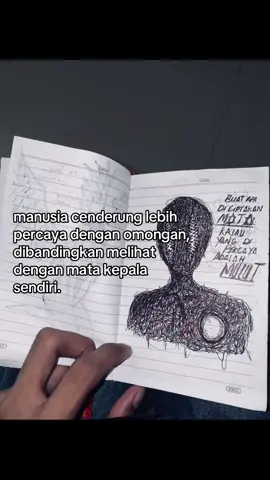 manusia cenderung lebih
percaya dengan omongan,
dibandingkan melihat
dengan mata kepala
sendiri.
BUAT APA
DI CIPTAKAN
MATA
KALAU
YANG DI
PERCAYA
ADALAH
MULUT